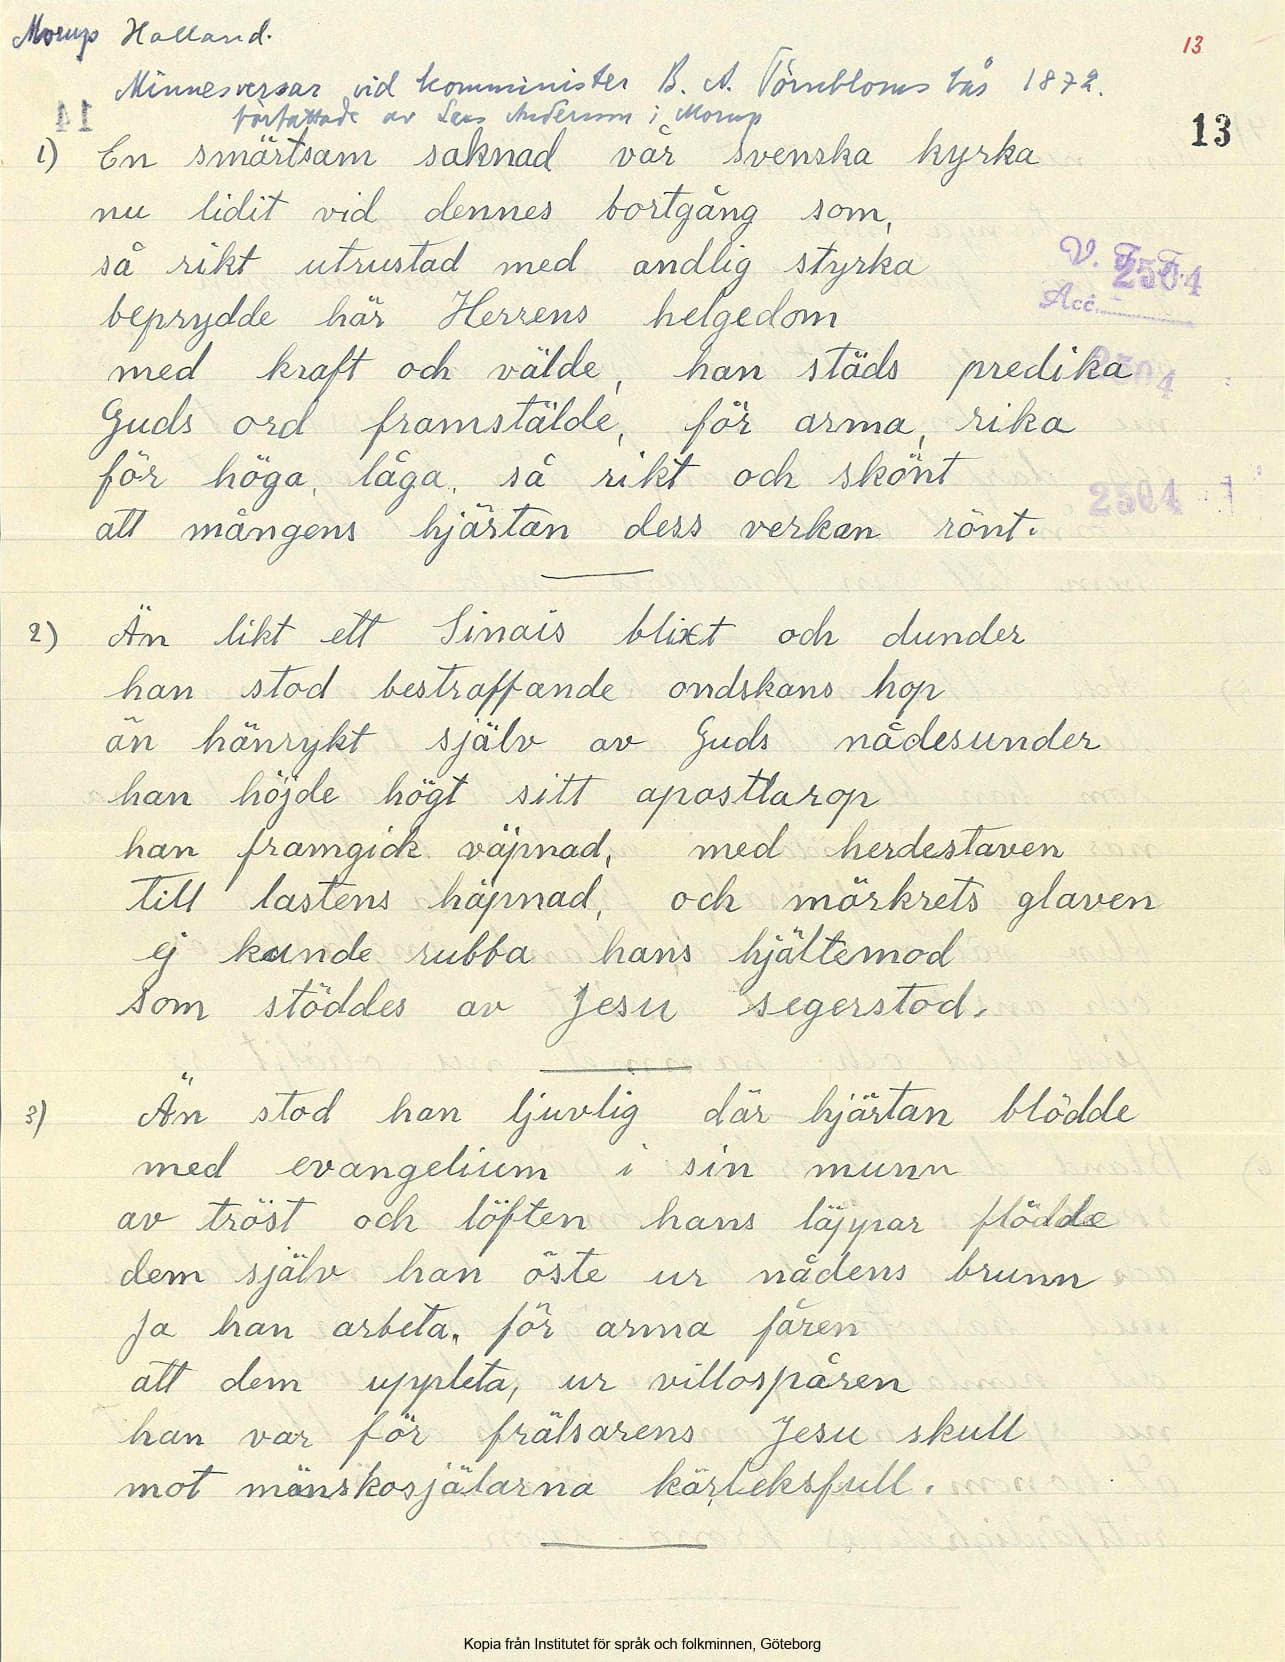 Morup Halland.
13
Minnesversar vid komminister B. A. Törnbloms bås 1872.
författade av Lars Anderson i Morup
13
1) En smärtsam saknad vår svenska kyrka
nu lidit vid dennes bortgång som,
så rikt utrustad med andlig styrka
beprydde här Herrens helgedom
med kraft och välde, han städs predika
Guds ord framstälde, för arma, rika
för höga, låga, så rikt och skönt
att mångens hjärtan dess verkan rönt.
V. F. F.
2504
Acc.
2504
2) Än likt ett Sinais blixt och dunder
han stod bestraffande ondskans hop
än hänrykt själv av Guds nådesunder
han höjde högt sitt apostlarop
han framgick väpnad, med herdestaven
till lastens häpnad, och mörkrets glaven
ej kunde rubba hans hjältemod
som stöddes av Jesu segerstod.
3) Än stod han ljuvlig där hjärtan blödde
med evangelium i sin munn
av tröst och löften hans läppar flödde
dem själv han öste ur nådens brunn
Ja han arbeta, för arma fåren
att dem uppleta, ur villospåren
han var för frälsarens Jesu skull
mot mänskosjälarna kärleksfull.
Kopia från Institutet för språk och folkminnen, Göteborg